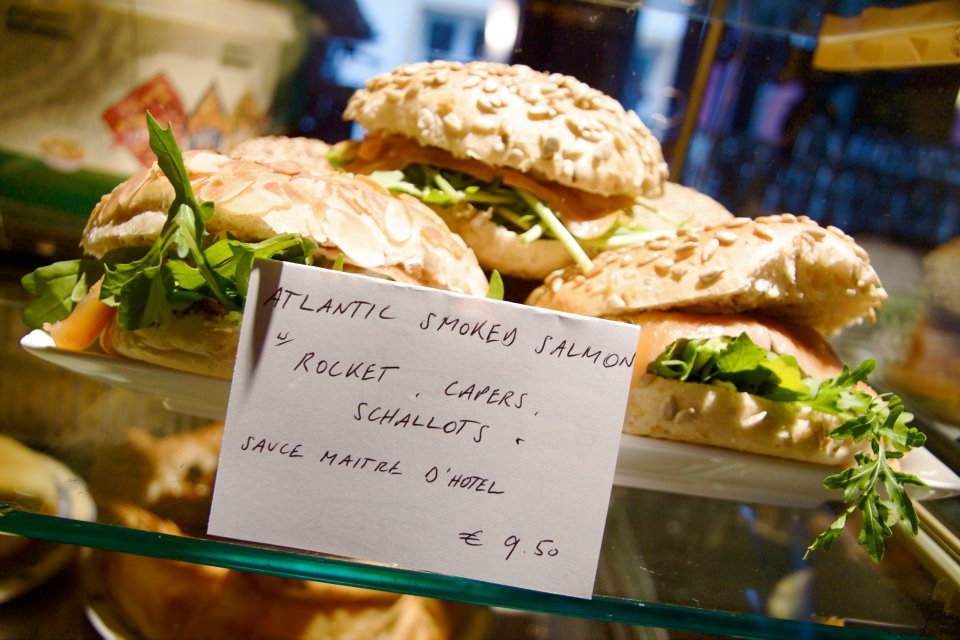 ATLANTIC SMOKED SALMON
W/ ROCKET, CAPERS,
SCHALLOTS +
SAUCE MAITRE D'HOTEL
€ 9.50